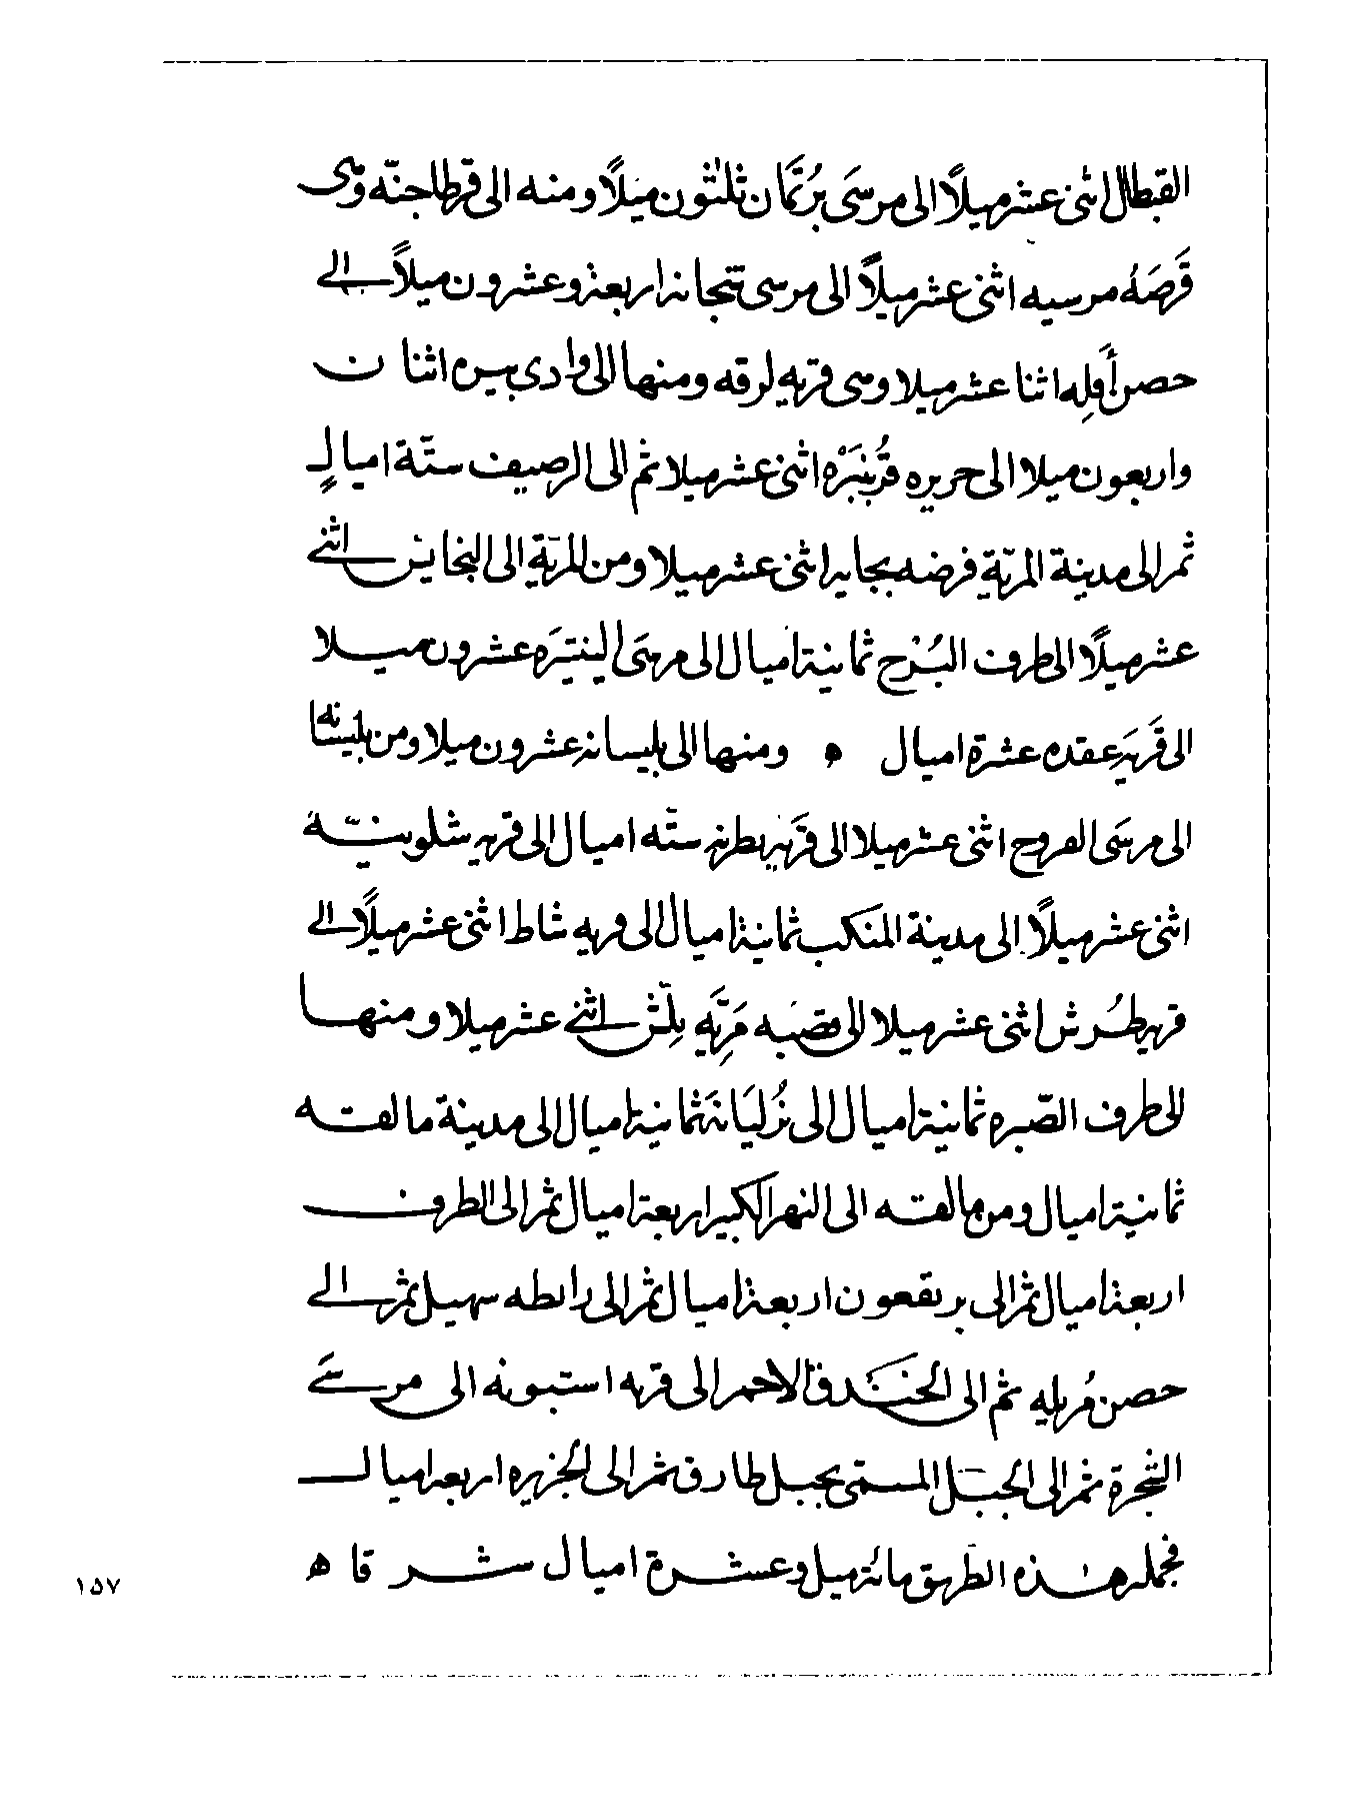 القبطال اثنى عشر ميلًا الى مرسَى بُرتمَّان ثلثون ميلًا ومنه الى قرطاجنّه وهى
قَرصَهُ مرسيه اثنى عشر ميلًا الى مرسى تتجانه اربعة وعشرون ميلًا الى
حصن أَقِله اثنا عشر ميلا وهى قريه لرقه ومنها الى وادى بيره اثنان
واربعون ميلا الى حريره قُرَبْنَيْرَه اثنى عشر ميلا ثم الى الرصيف ستّة اميال
ثم الى مدينة المريّة فرضه بجايه اثنى عشر ميلا ومن المريّة الى البخايس اثنى
عشر ميلًا الى طرف البُرْح ثمانية اميال الى مرسَى الينتيَرَه عشرون ميلا
الى قَريَه عقده عشرة اميال ه ومنها الى بليسانه عشرون ميلا ومن بليسانه
الى مرسَى الفروح اثنى عشر ميلا الى قَريَه بطرنه ستّه اميال الى قريه شلوبنيّة
اثنى عشر ميلًا الى مدينة المنكب ثمانية اميال الى قريه شاط اثنى عشر ميلًا الى
قريه طُرش اثنى عشر ميلا الى قصَبه مَرِيَّه بِلّش اثنى عشر ميلا ومنها
الى طرف الصّبره ثمانية اميال الى بُزليَانَه ثمانية اميال الى مدينة مالقه
ثمانية اميال ومن مالقه الى النهر الكبير اربعة اميال ثم الى الطرف
اربعة اميال ثم الى بربقعون اربعة اميال ثم الى رابطه سهيل ثم الى
حصن مُربله ثم الى الخَندق الاحمر الى قريه استبونه الى مرسَى
الشجرة ثم الى الجبَل المسمّى بجبل طارق ثم الى الجزيره اربعه اميال
فجمله هذه الطّريق مائة ميل وعشرة اميال شرقا ه
١٥٧